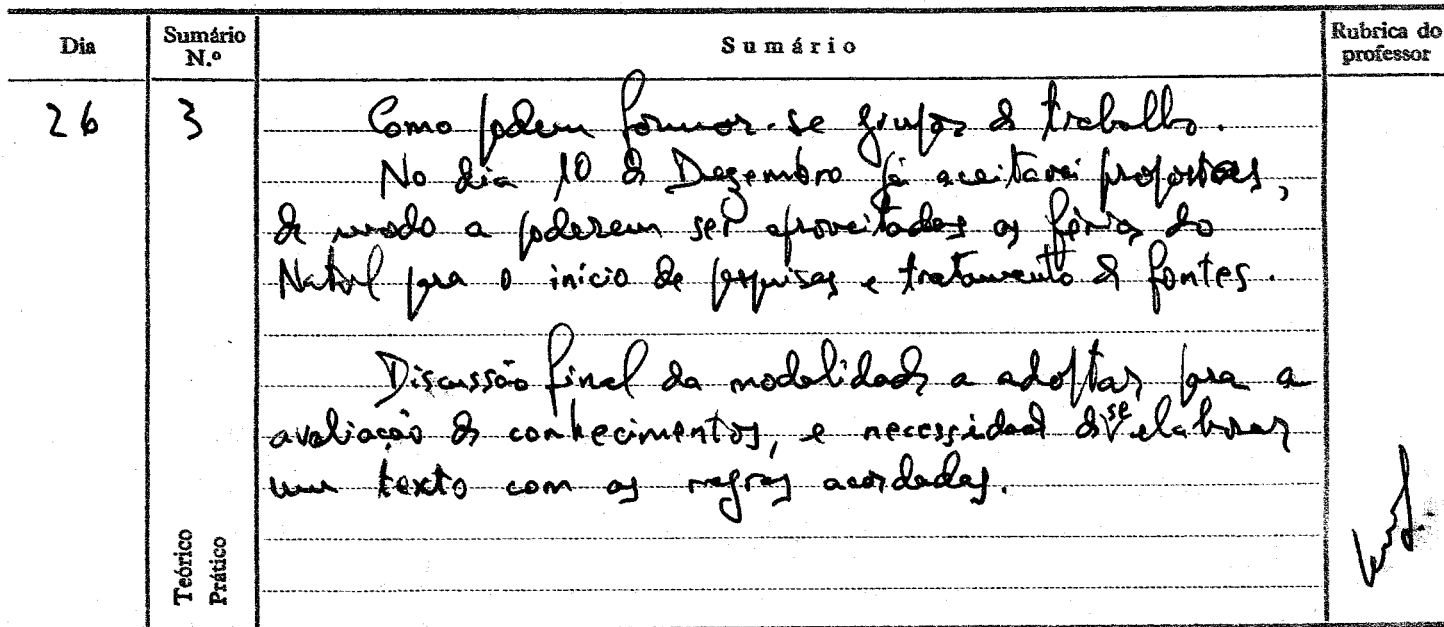 Dia
Sumário N.º
Sumário
Rubrica do professor
26
3
Como podem formar-se grupos de trabalho.
No dia 10 de Dezembro já aceitarei propostas,
de modo a poderem ser aproveitadas as férias do
Natal para o início de pesquisas e tratamento de fontes.
Discussão final da modalidade a adoptar para a
avaliação de conhecimentos, e necessidade de se elaborar
um texto com as regras acordadas.
Teórico
Prático